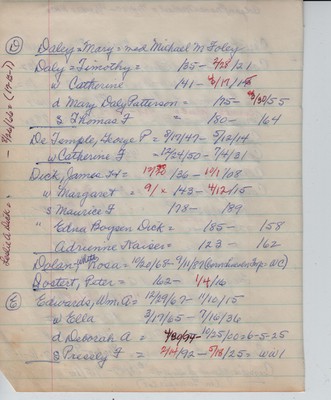 (D) Daley = Mary = mrd Michael M Foley
Daly = Timothy = 125 - 2/28/21
w Catherine 141 - 6/17/15
d Mary Daly Patterson = 175 - 8/30/55
s Thomas F = 180 - 164
De Temple, George P = 8/17/47 - 5/12/14
w Catherine F = 7/24/50 - 7/4/31
Dick, James H = 136 - 10/1/08
w Margaret = 9/x 143 - 4/12/15
s Maurice F 178 - 189
" Edna Boysen Dick = 185 - 158
Adrienne Kaiser = 123 - 162
Dolan, Rosa = 10/20/68 - 9/11/87
Dostert, Peter = 162 - 1/4/16
(E) Edwards, Wm. A = 12/29/67 - 11/10/15
w Ella 3/17/65 - 7/16/36
d Deborah A = 10/25/00 = 6-5-25
s Pressly F = 2/14/92 - 5/18/25 = WW1